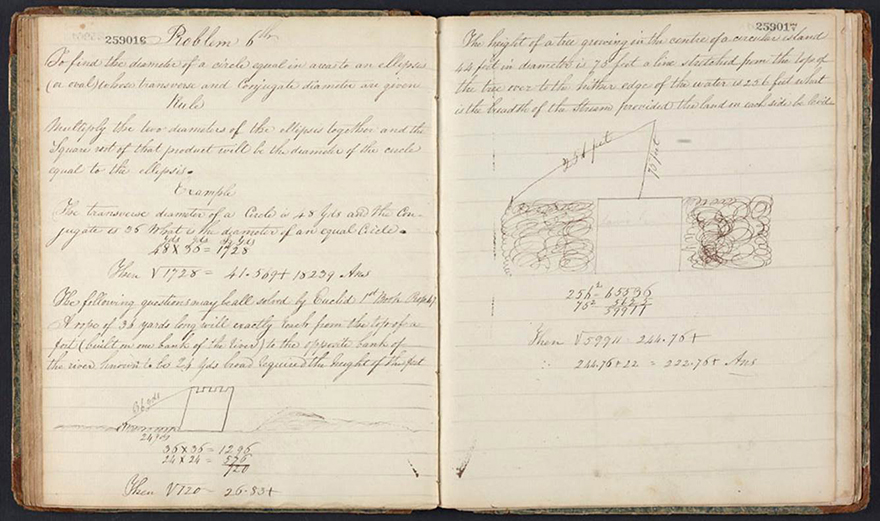 259016
Problem 6th
To find the diameter of a circle equal in area to an ellipsis
(or oval) whose transverse and Conjugate diameter are given
Rule
Multiply the two diameters of the ellipsis together and the
Square root of that product will be the diameter of the circle
equal to the ellipsis.
Example
The transverse diameter of a Circle is 48 Yds and the Con-
jugate is 36 What is the diameter of an equal Circle.
yds yds Yds
48 X 36 = 1728
Then √1728 = 41.569+ Ans
The following questions may be all solved by Euclid 1st Book Prop 47
A rope of 36 yards long will exactly reach from the top of a
fort (built on one bank of the river) to the opposite bank of
the river known to be 24 Yds broad required the height of the fort
36 yds
24 yds
36 X 36 = 1296
24 X 24 = 576
720
Then √720 = 26.83+
259017
The height of a tree growing in the centre of a circular island
44 feet in diameter is 75 feet a line stretched from the top of
the tree over to the hither edge of the water is 256 feet what
is the breadth of the Stream provided the land on each side be level
256 feet
75 feet
256² = 65536
75² 5625
59911
Then √59911 = 244.76+
∴ 244.76 - 22 = 222.76+ Ans